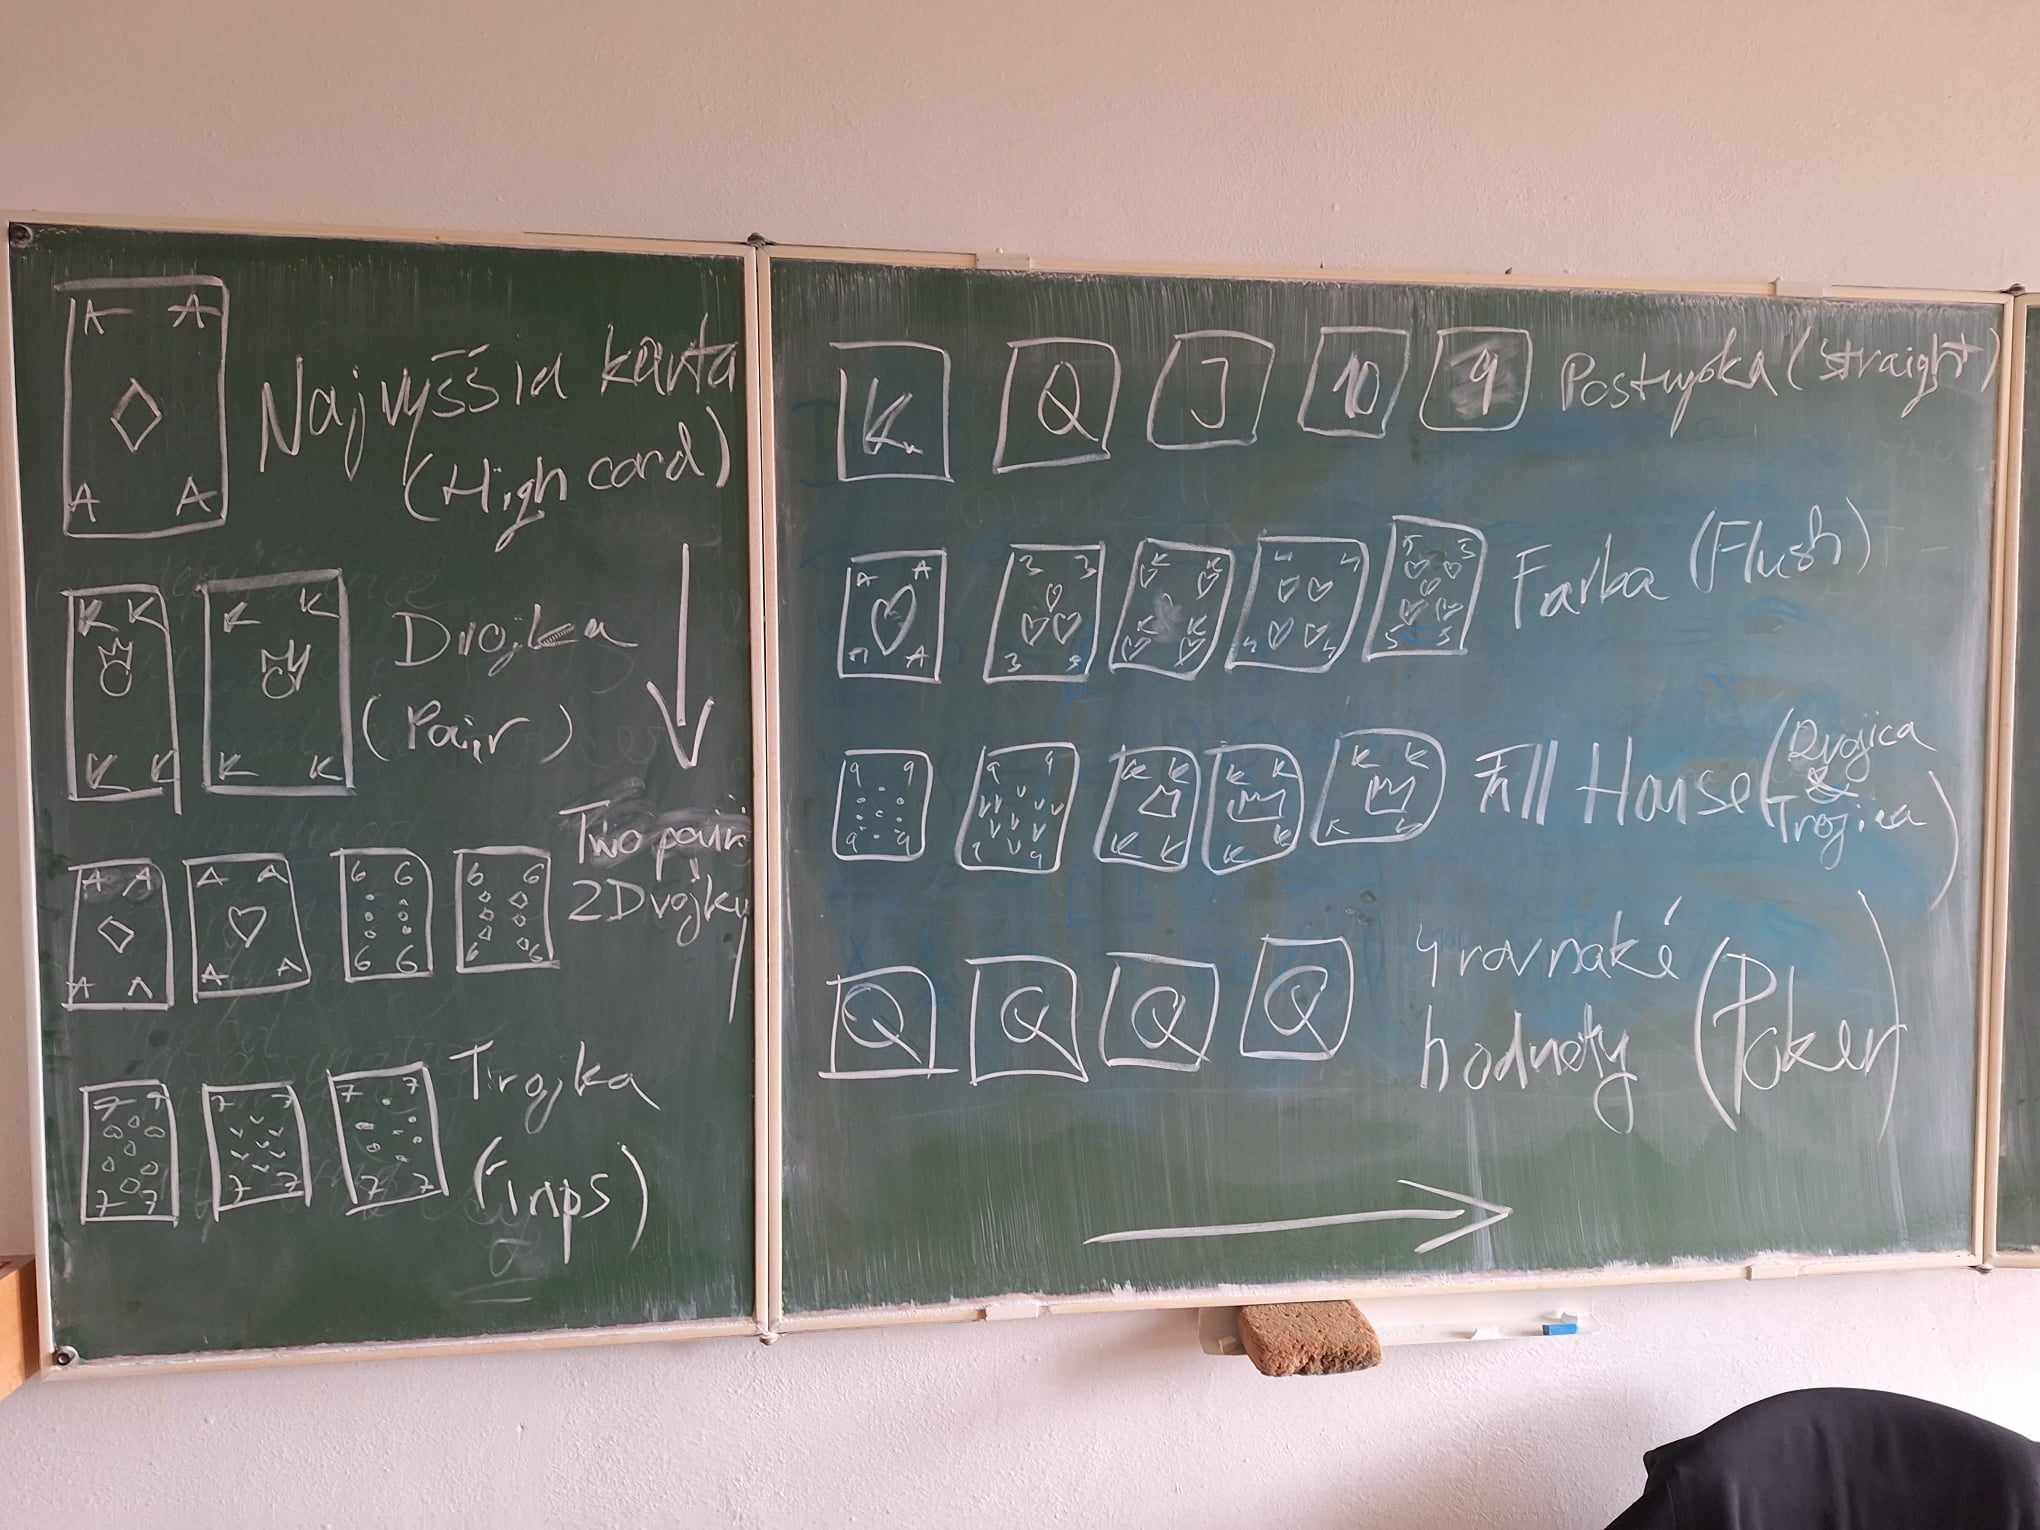 A A
A A
Najvyššia karta
(High card)
K K K K
K K K K
Dvojka
(Pair)
A A A A 6 6 6 6
A A A A 6 6 6 6
Two pair
2Dvojky
7 7 7 7 7 7
7 7 7 7 7 7
Trojka
K Q J 10 9 Postupka (straight)
A A 3 3 K K 4 4 5 5
A 3 K K 4 4 5 5
Farba (Flush)
9 9 9 9 K K K K K K
9 9 9 9 K K K K K K
Full House (Dvojica
&
Trojica)
Q Q Q Q
4 rovnaké
hodnoty (Poker)